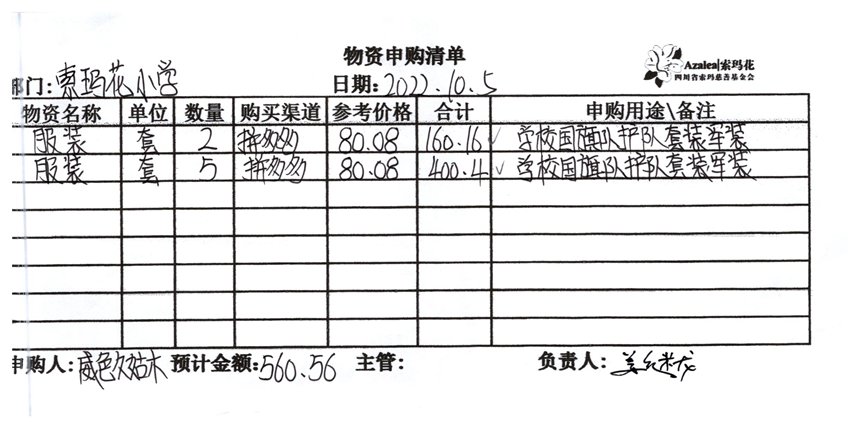 物资申购清单
Azalea|索玛花
四川省索玛慈善基金会
部门:索玛花小学 日期:2022.10.5
物资名称 单位 数量 购买渠道 参考价格 合计 申购用途\备注
服装 套 2 拼多多 80.08 160.16 ✓ 学校国旗队护队套装军装
服装 套 5 拼多多 80.08 400.4 ✓ 学校国旗队护队套装军装
申购人: 预计金额:560.56 主管: 负责人: